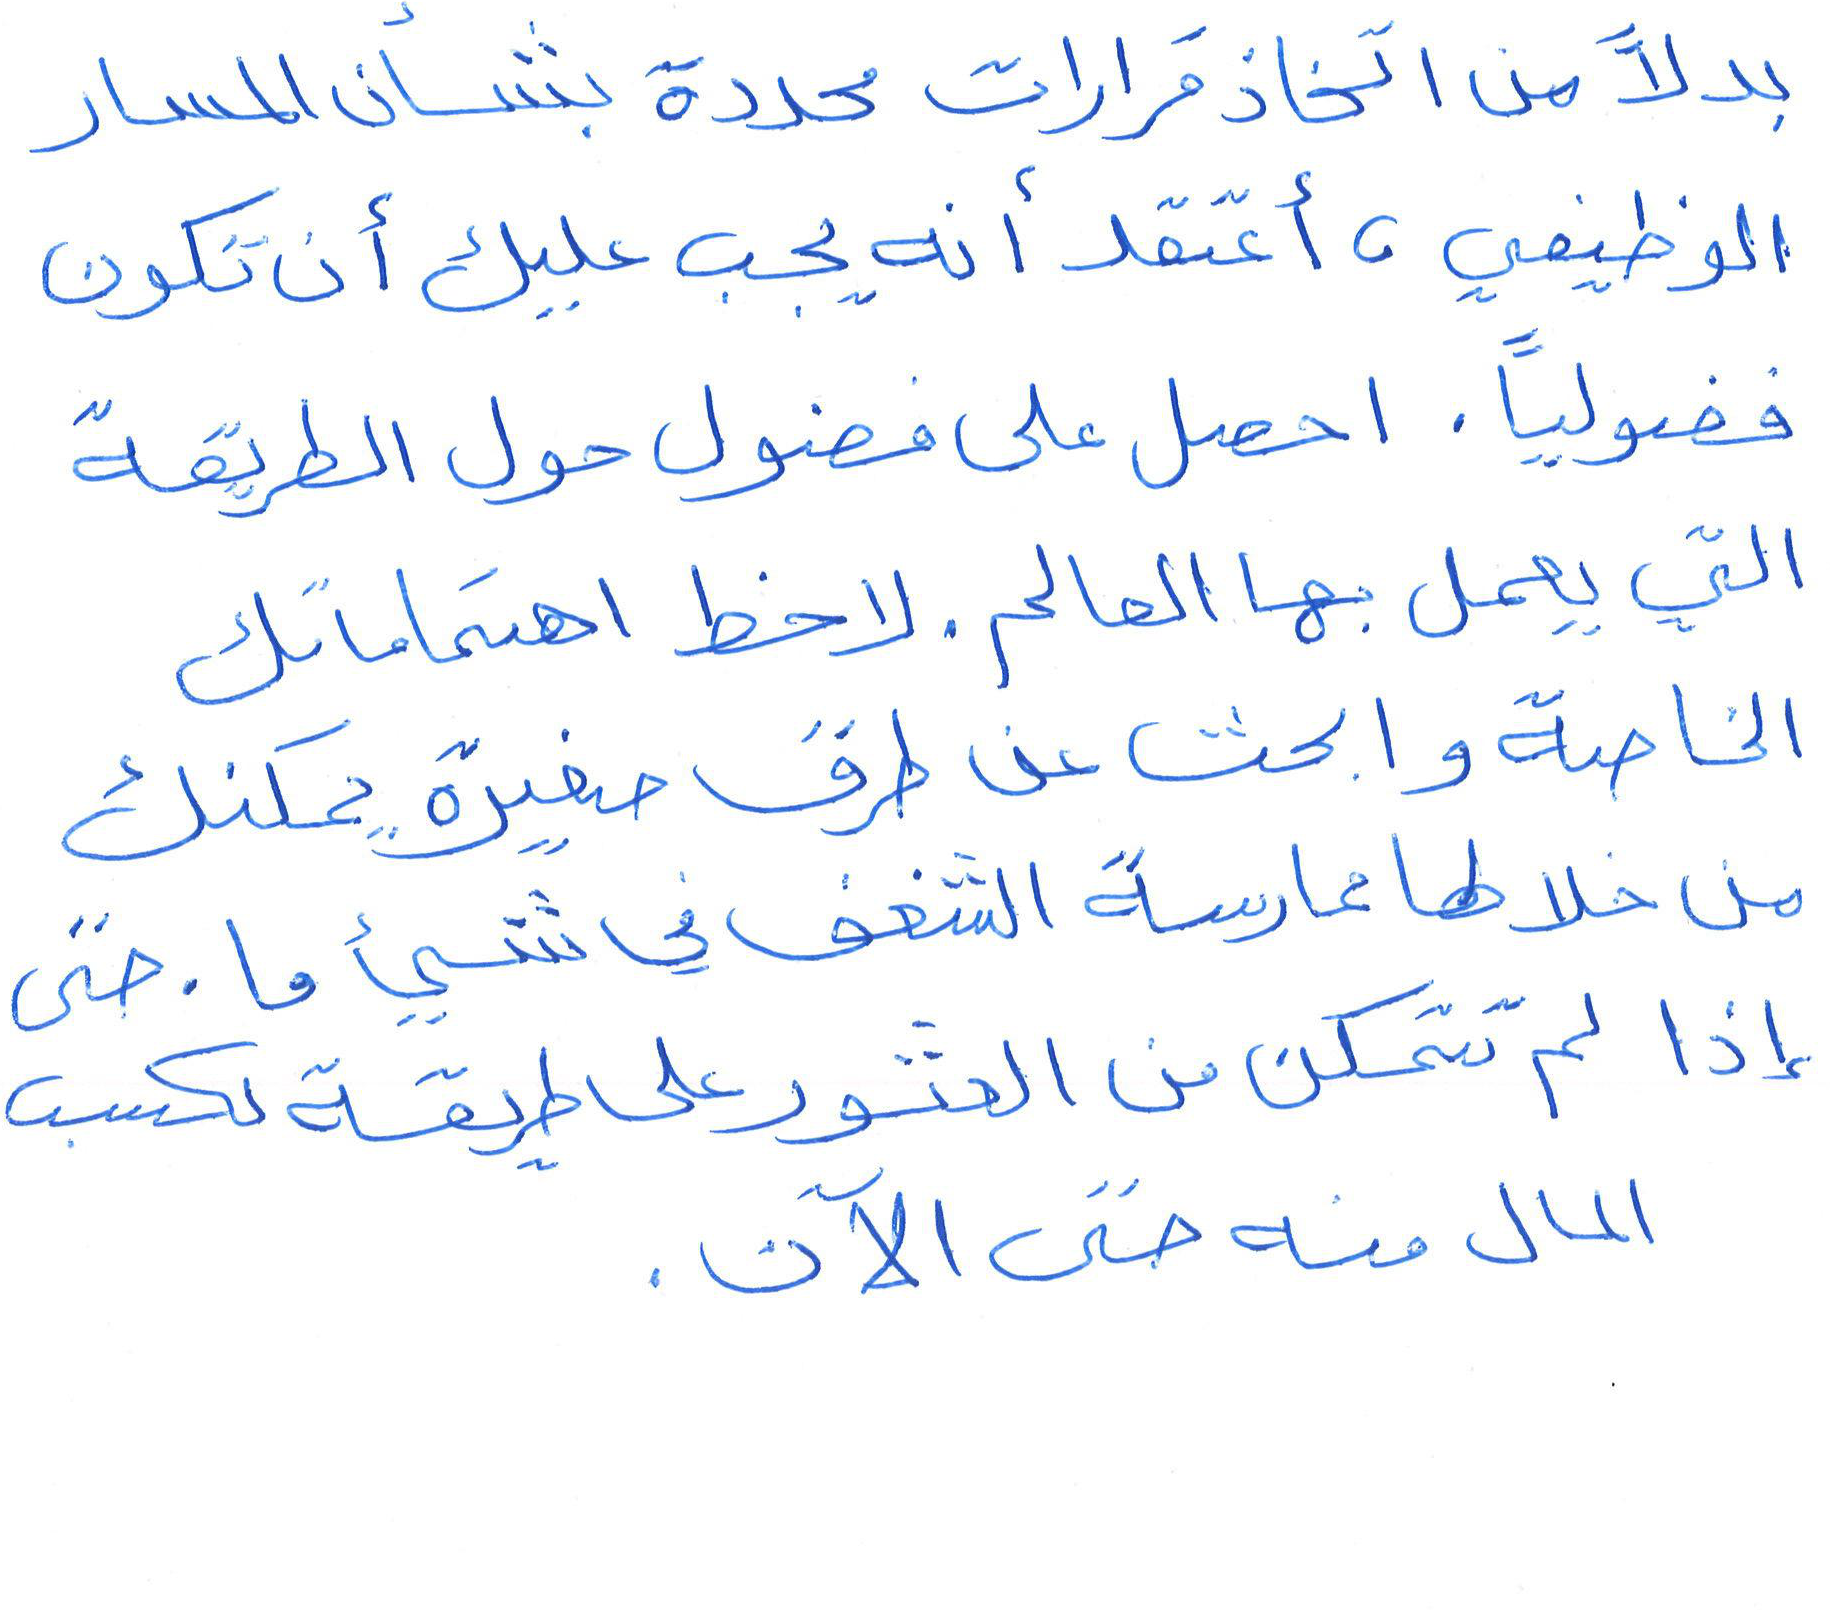 بدلاً من اتخاذ قرارات محددة بشأن المسار
الوظيفي ، أعتقد أنه يجب عليك أن تكون
فضولياً . احصل على فضول حول الطريقة
التي يعمل بها العالم . لاحظ اهتماماتك
الخاصة وابحث عن طرق صغيرة يمكنك
من خلالها ممارسة الشغف في شيأ ما . حتى
إذا لم تتمكن من العثور على طريقة لكسب
المال منه حتى الآن .